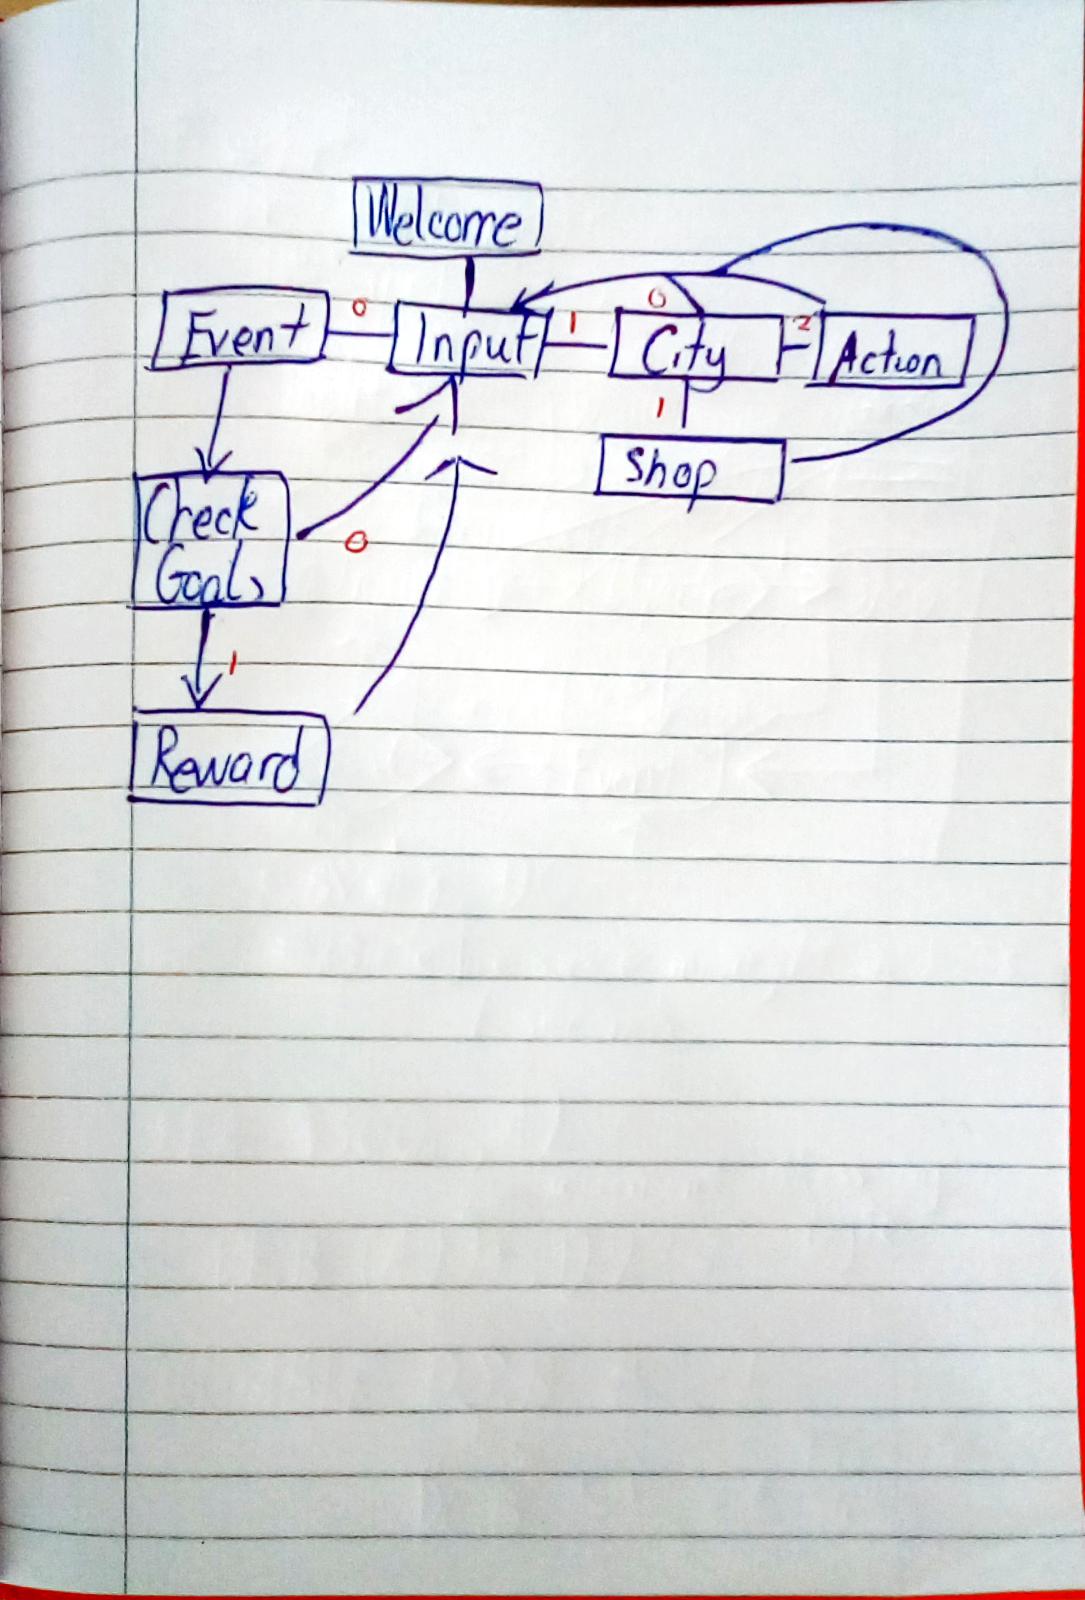 Welcome
Event
0
Input
1
0
City
2
Action
1
Shop
Check
Goals
0
1
Reward